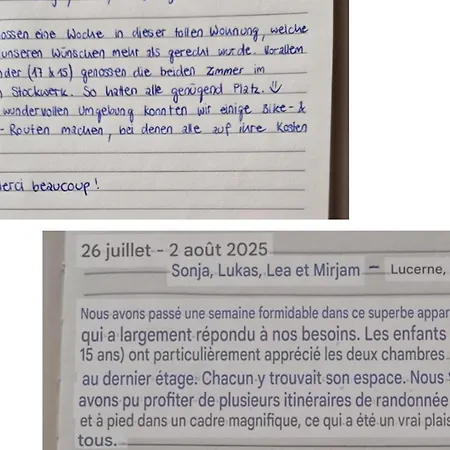 ossen eine Woche in dieser tollen Wohnung, welche
unseren Wünschen mehr als gerecht wurde. Vorallem
nder (17 & 15) genossen die beiden Zimmer im
Stockwerk. So hatten alle genügend Platz.
wundervollen Umgebung konnten wir einige Bike- &
-Routen machen, bei denen alle auf ihre Kosten
erci beaucoup!
26 juillet - 2 août 2025
Sonja, Lukas, Lea et Mirjam – Lucerne,
Nous avons passé une semaine formidable dans ce superbe appar
qui a largement répondu à nos besoins. Les enfants
15 ans) ont particulièrement apprécié les deux chambres
au dernier étage. Chacun y trouvait son espace. Nous
avons pu profiter de plusieurs itinéraires de randonnée
et à pied dans un cadre magnifique, ce qui a été un vrai plais
tous.